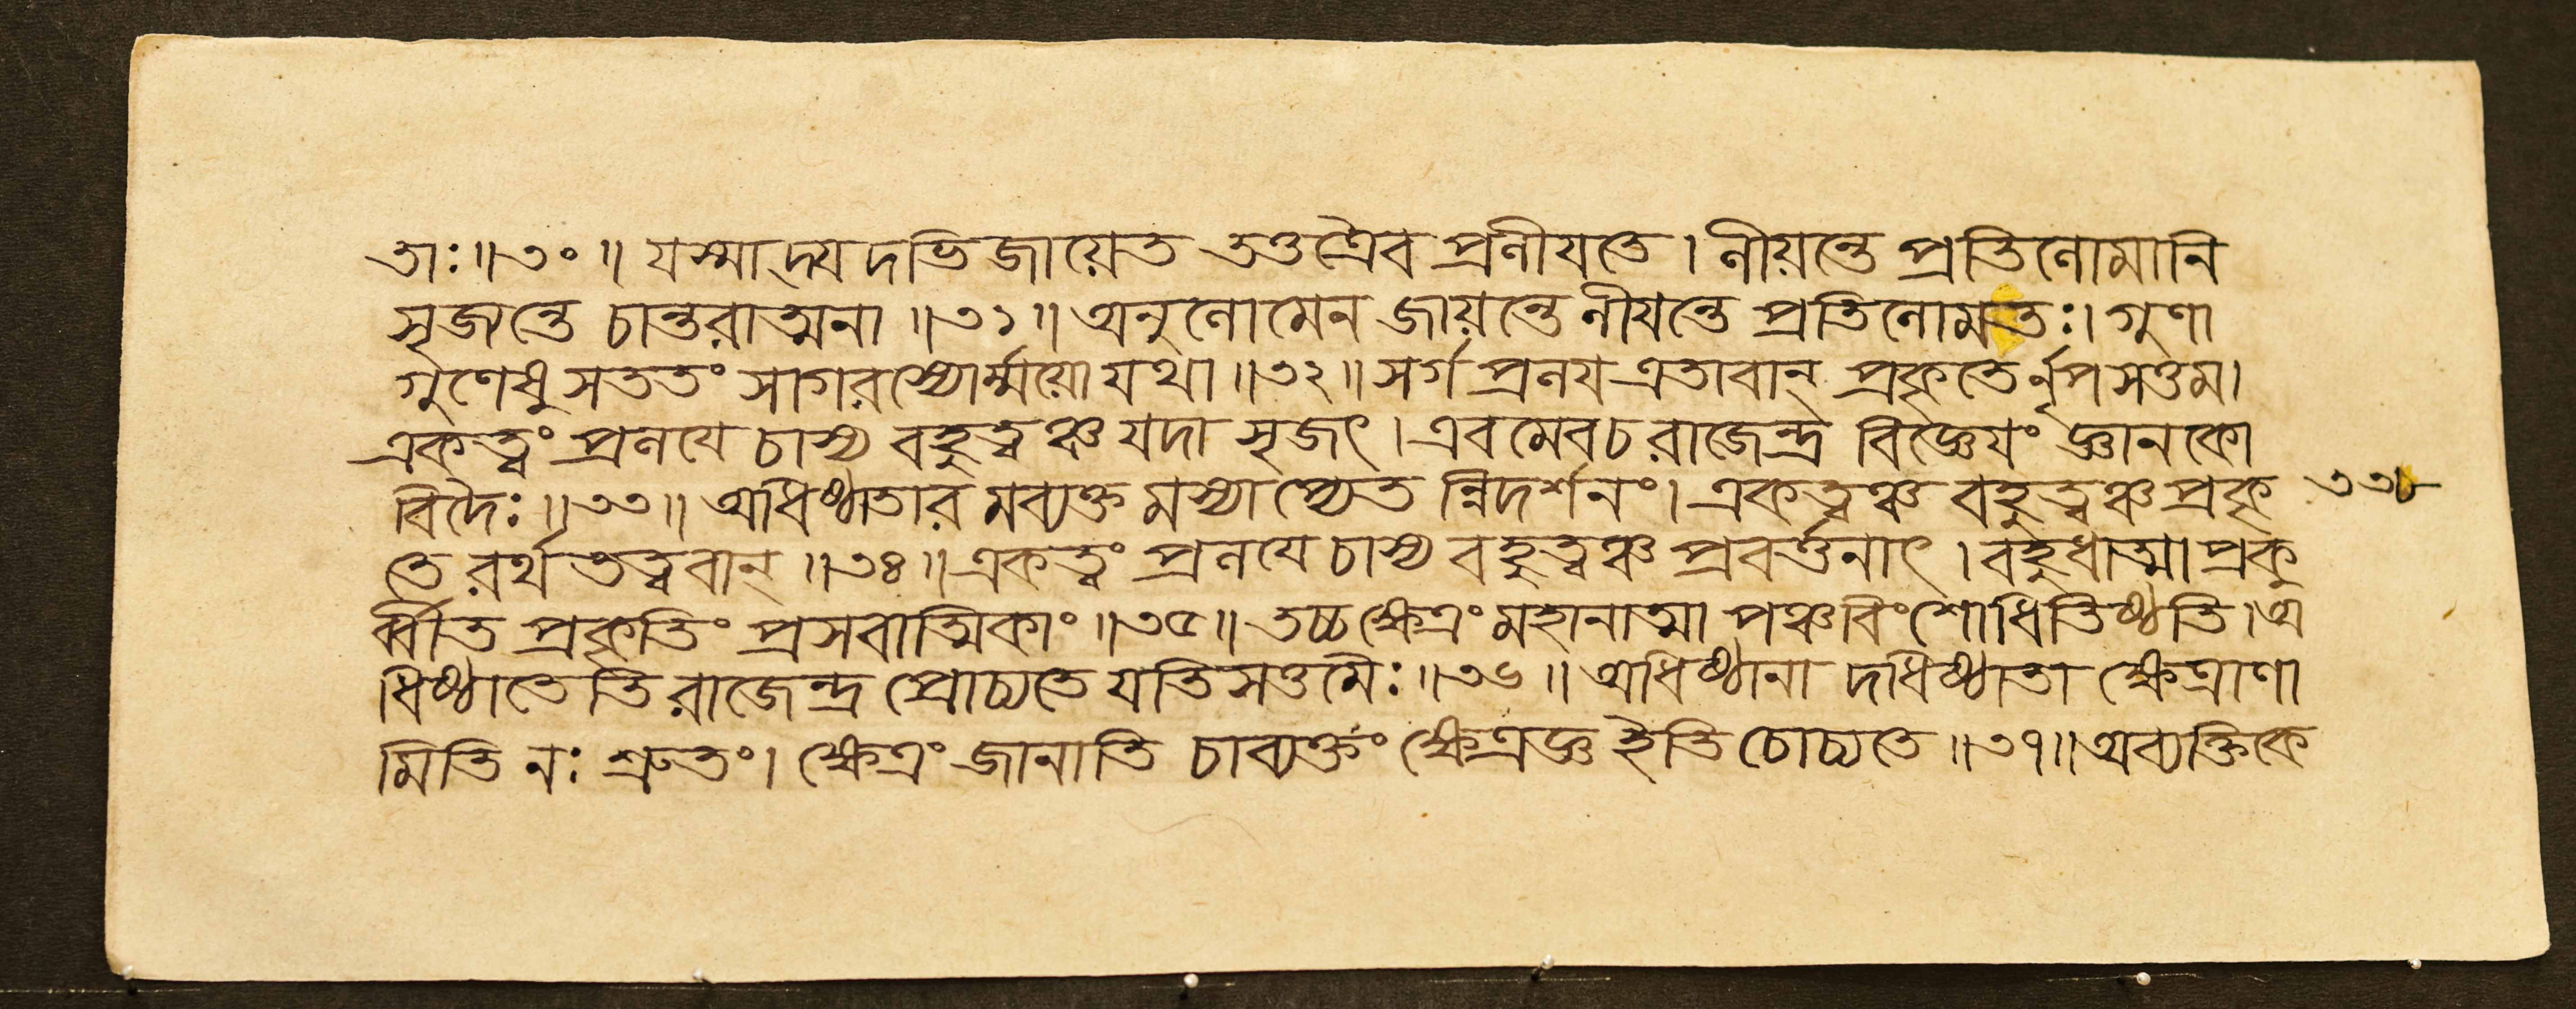 তাঃ॥৩০॥ যস্মাদ্যদভিজায়েত তত্তত্রৈব প্রলীযতে। লীয়ন্তে প্রতিলোমানি
সৃজ্যন্তে চান্তরাত্মনা॥৩১॥ অনুলোমেন জায়ন্তে লীযন্তে প্রতিলোমতঃ। গুণা
গুণেষু সততং সাগরস্যোর্ম্ময়ো যথা॥৩২॥ সর্গপ্রলয এতাবান্ প্রকৃতের্নৃপসত্তম।
একত্বং প্রলযে চাস্য বহুত্বঞ্চ যদাসৃজৎ। এবমেবচ রাজেন্দ্র বিজ্ঞেযং জ্ঞানকো
বিদৈঃ॥৩৩॥ অধিষ্ঠাতারমব্যক্তমস্যাপ্যেতন্নিদর্শনং। একত্বঞ্চ বহুত্বঞ্চ প্রকৃ
তেরর্থতত্ত্ববান্॥৩৪॥ একত্বং প্রলযে চাস্য বহুত্বঞ্চ প্রবর্ত্তনাৎ। বহুধাত্মা প্রকু
র্ব্বীত প্রকৃতিং প্রসবাত্মিকাং॥৩৫॥ তচ্চ ক্ষেত্রং মহানাত্মা পঞ্চবিংশোধিতিষ্ঠতি। অ
ধিষ্ঠাতেতি রাজেন্দ্র প্রোচ্যতে যতিসত্তমৈঃ॥৩৬॥ অধিষ্ঠানাদধিষ্ঠাতা ক্ষেত্রাণা
মিতি নঃ শ্রুতং। ক্ষেত্রং জানাতি চাব্যক্তং ক্ষেত্রজ্ঞ ইতি চোচ্যতে॥৩৭॥ অব্যক্তিকে